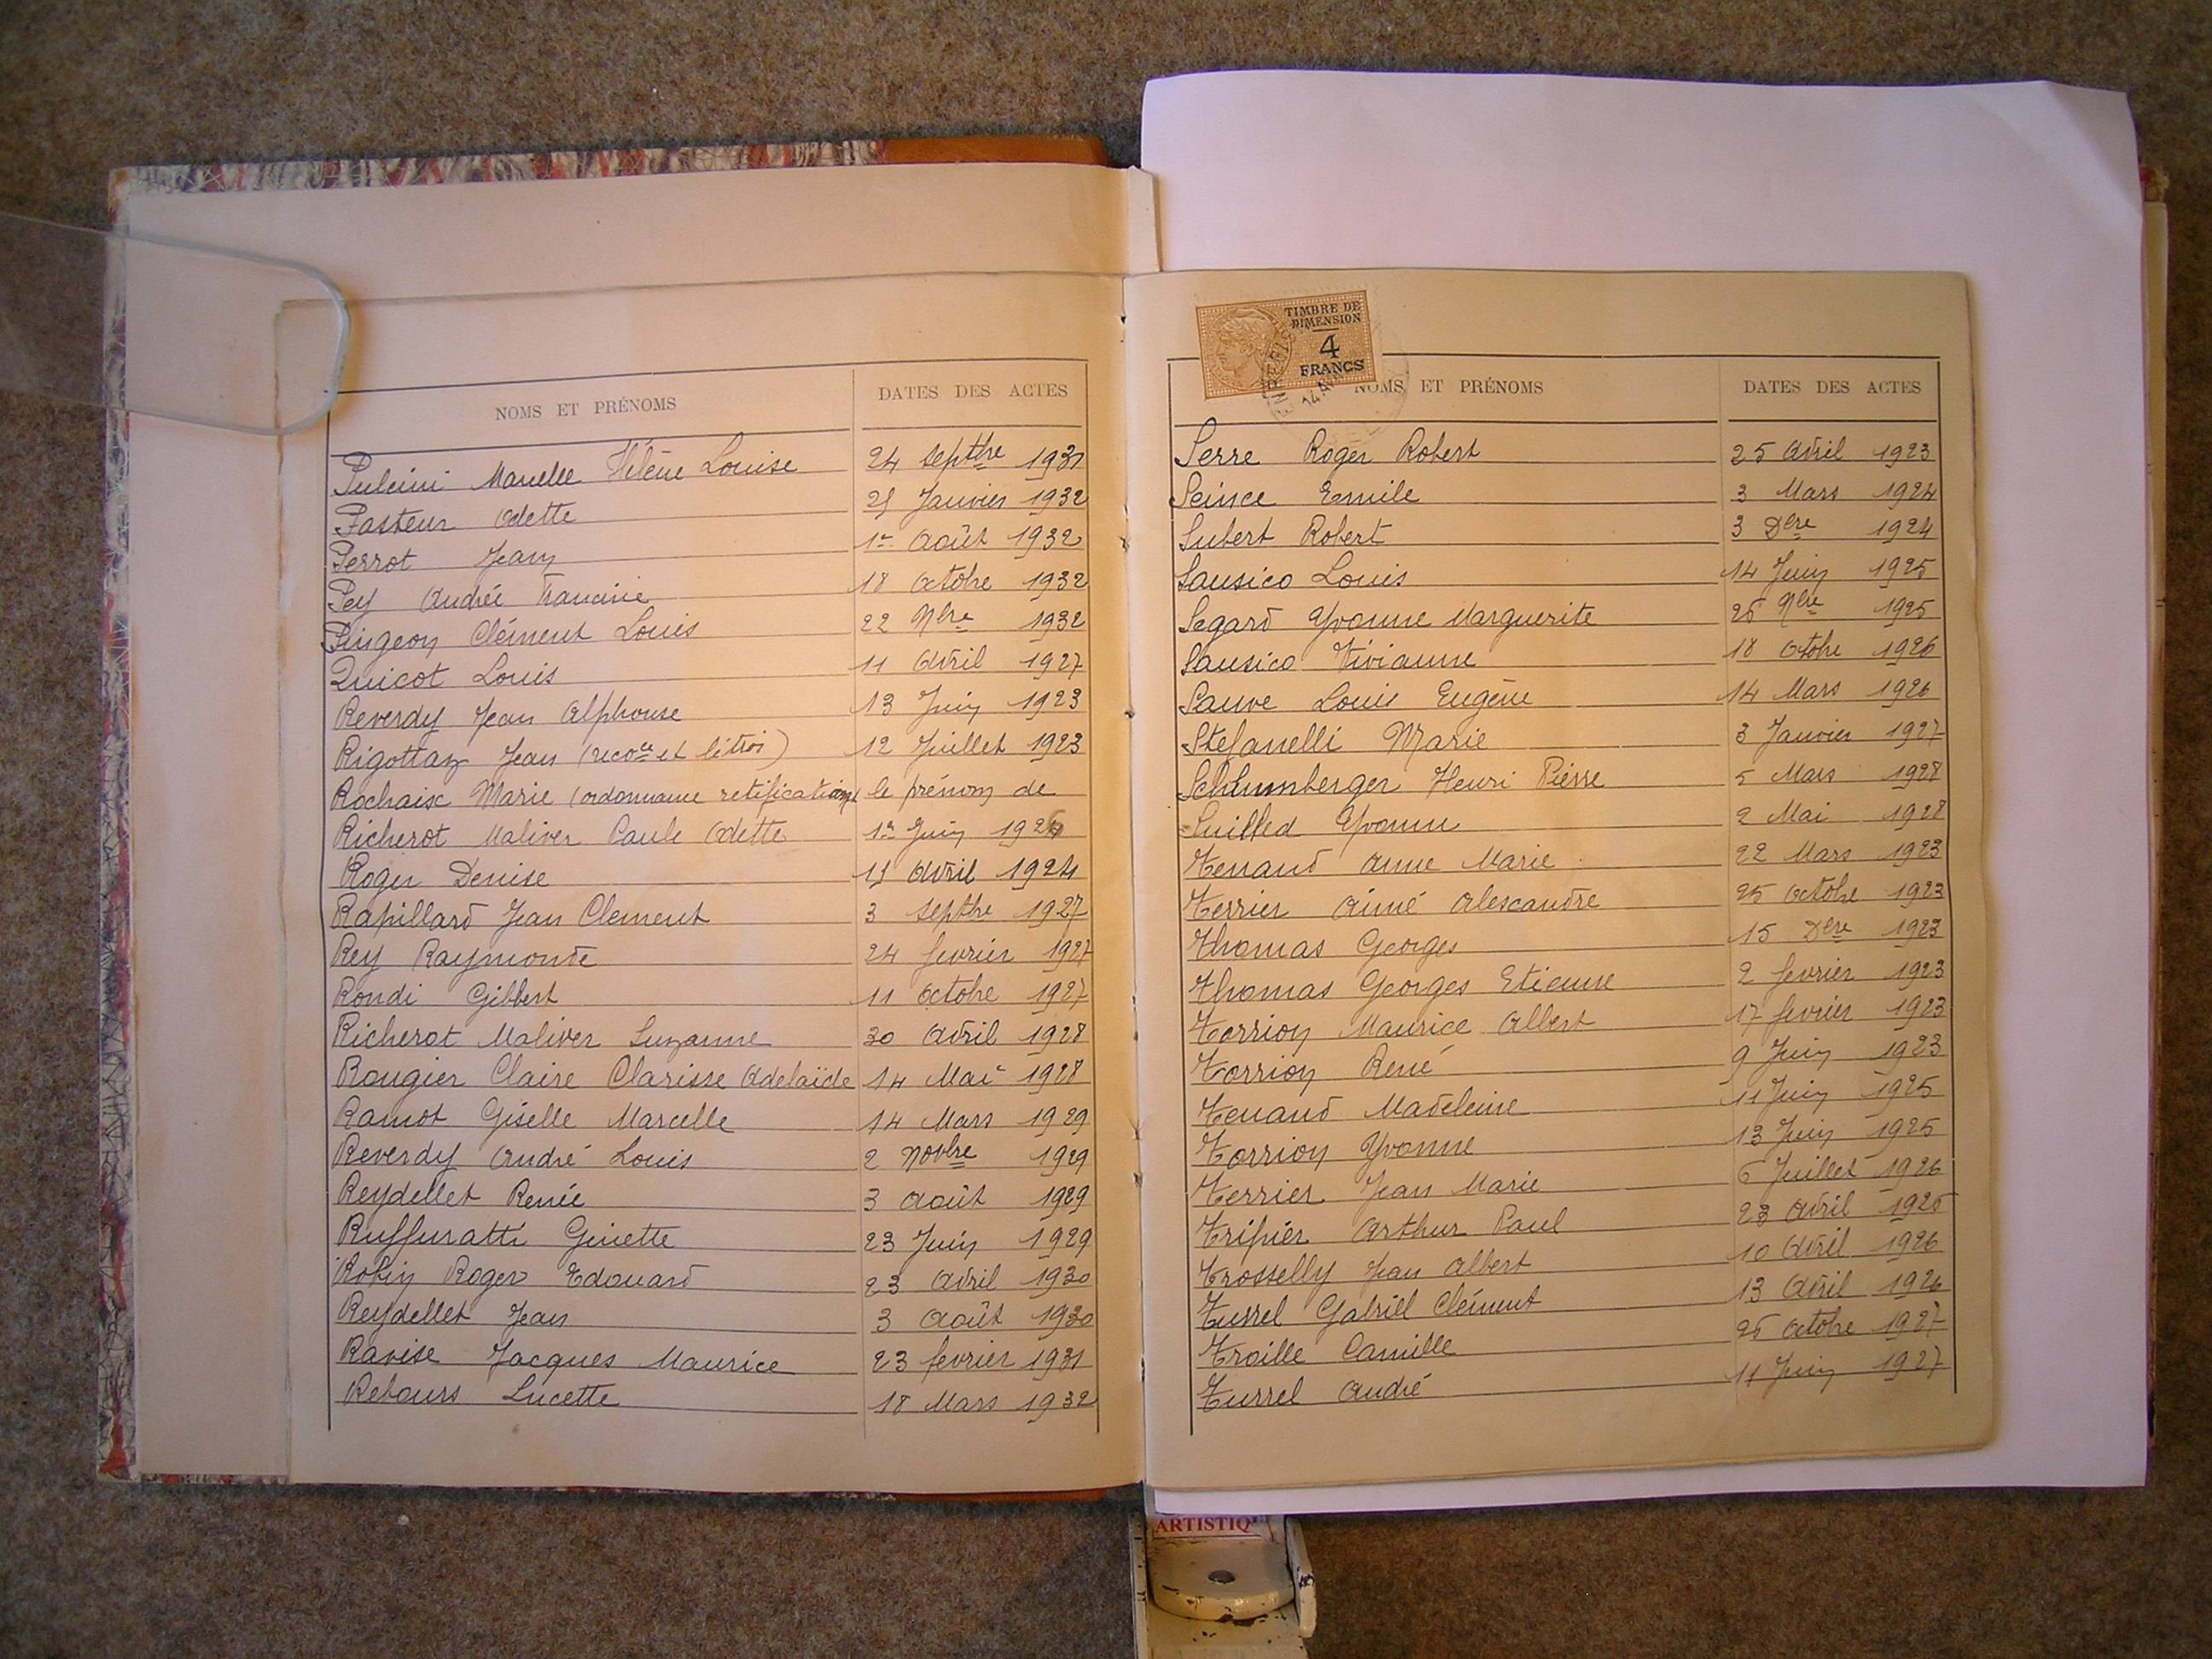 NOMS ET PRÉNOMS DATES DES ACTES
Pulcini Marcelle Hélène Louise 24 septbre 1931
Pasteur Odette 25 Janvier 1932
Perrot Jean 1er Août 1932
Pey Andrée Francine 18 Octobre 1932
Pingeon Clément Louis 22 Nbre 1932
Quicot Louis 11 Avril 1927
Reverdy Jean Alphonse 13 Juin 1923
Rigottaz Jean 12 Juillet 1923
Rochaix Marie (ordonnance retification le prénom de
Richerot Maliver Paule Odette 1er Juin
Roger Denise 15 Avril 1924
Rapillard Jean Clement 3 septbre 1927
Rey Raymonde 24 fevrier 1927
Rondi Gilbert 11 Octobre 1927
Richerot Maliver Suzanne 30 Avril 1928
Rougier Claire Clarisse Adelaïde 14 Mai 1928
Ramot Giselle Marcelle 14 Mars 1929
Reverdy André Louis 2 Novbre 1929
Reydellet Renée 3 Août 1929
Ruffuratti Ginette 23 Juin 1929
Robin Roger Edouard 23 Avril 1930
Reydellet Jean 3 Août 1930
Ravise Jacques Maurice 23 fevrier 1931
Rebours Lucette 18 Mars 1932
TIMBRE DE
DIMENSION
4
FRANCS
NOMS ET PRÉNOMS DATES DES ACTES
Serre Roger Robert 25 Avril 1923
Seince Emile 3 Mars 1924
Subert Robert 3 Dbre 1924
Sausico Louis 14 Juin 1925
Segard Yvonne Marguerite 26 Nbre 1925
Sausico Vivianne 18 Octobre 1926
Sauve Louis Eugène 14 Mars 1926
Stefanelli Marie 3 Janvier 1927
Schlumberger Henri Pierre 5 Mars 1928
Suilled Yvonne 2 Mai 1928
Tenand Anne Marie 22 Mars 1923
Terrier Aimé Alexandre 25 Octobre 1923
Thomas Georges 15 Dbre 1923
Thomas Georges Etienne 2 fevrier 1923
Torrion Maurice Albert 17 fevrier 1923
Torrion René 9 Juin 1923
Tenand Madeleine 11 Juin 1925
Torrion Yvonne 13 Juin 1925
Terrier Jean Marie 6 Juillet 1926
Tripier Arthur Paul 23 Avril 1926
Trosselly Jean Albert 10 Avril 1926
Turrel Gabriel Clément 13 Avril 1926
Troille Camille 25 Octobre 1927
Turrel André 11 Juin 1927
ARTISTIQ